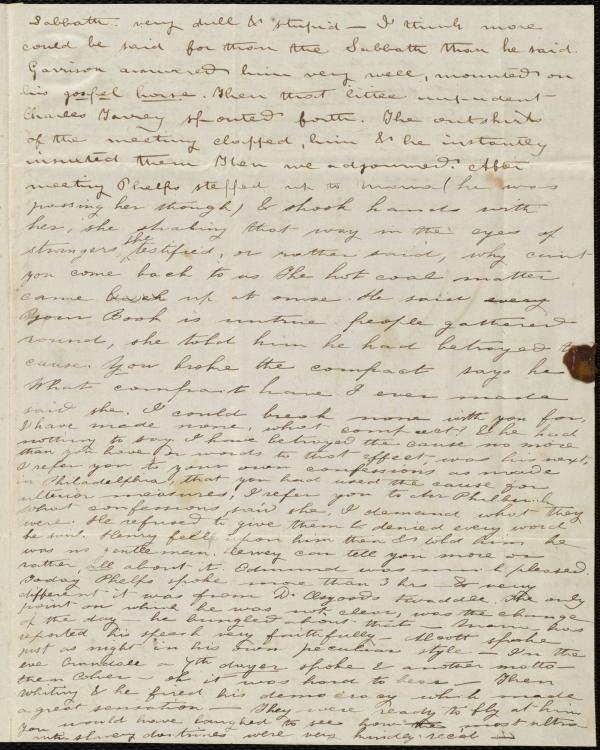 Sabbath. very dull & stupid — I think more
could be said for than the Sabbath than he said.
Garrison answered him very well, mounted on
his gospel horse. Then that little impudent
Charles Torrey spouted forth. The outskirts
of the meeting clapped, him & he instantly
insulted them Then we adjourned. After
meeting Phelps stepped up to Maria (he was
passing her though) & shook hands with
her, she shaking that way in the eyes of
strangers, she testified, or rather said, why can't
you come back to us The hot coal matter
came back up at once. He said every
Your Book is untrue. people gathered
round, she told him he had betrayed
cause. You broke the compact says he
What compact have I ever made
said she. I could break none with you for,
I have made none, what compact? & he had
nothing to say. I have betrayed the cause no more
than you have or words to that effect, was his next,
I refer you to your own confessions as made
in Philadelphia, that you had used the cause for
ulterior measures, I refer you to Mr Philbrick
What confessions, said she, I demand what they
were. He refused to give them & denied every word
he said. Henry fell upon him then & told him he
was no gentleman. can tell you more or
rather, all about it. Edmund was much pleased.
Today Phelps spoke more than 3 hrs — & very
different it was from Dr Osgoods twaddle. The only
point on which he was not clear, was the change
of the day — he bungled about that — Maria has
reported his speech very faithfully — Alcott spoke
just as night in his own peculiar style — In the
eve a 7th dayer spoke & another
then Colver — oh it was hard to bear — Then
Whiting & he fired his democracy which made
a great sensation — They were ready to fly at him
You would have laughed to see how the most ultra
anti slavery doctrines were very